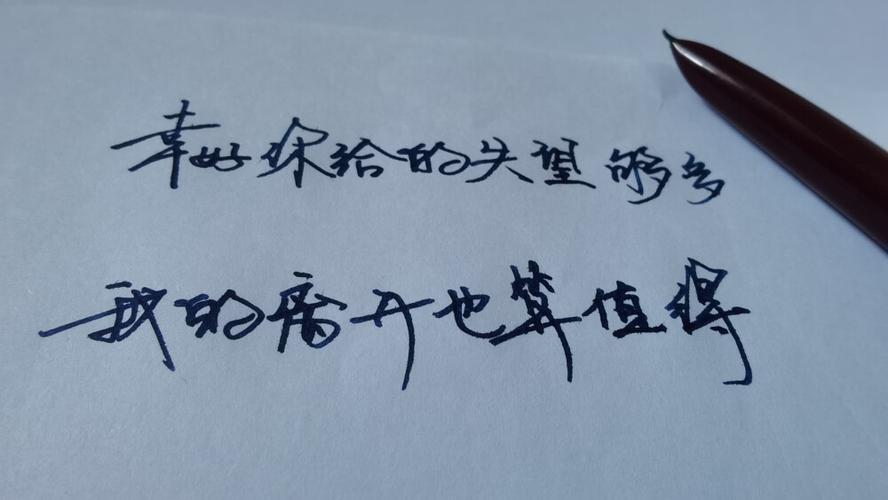 幸好你给的失望够多
我的离开也算值得